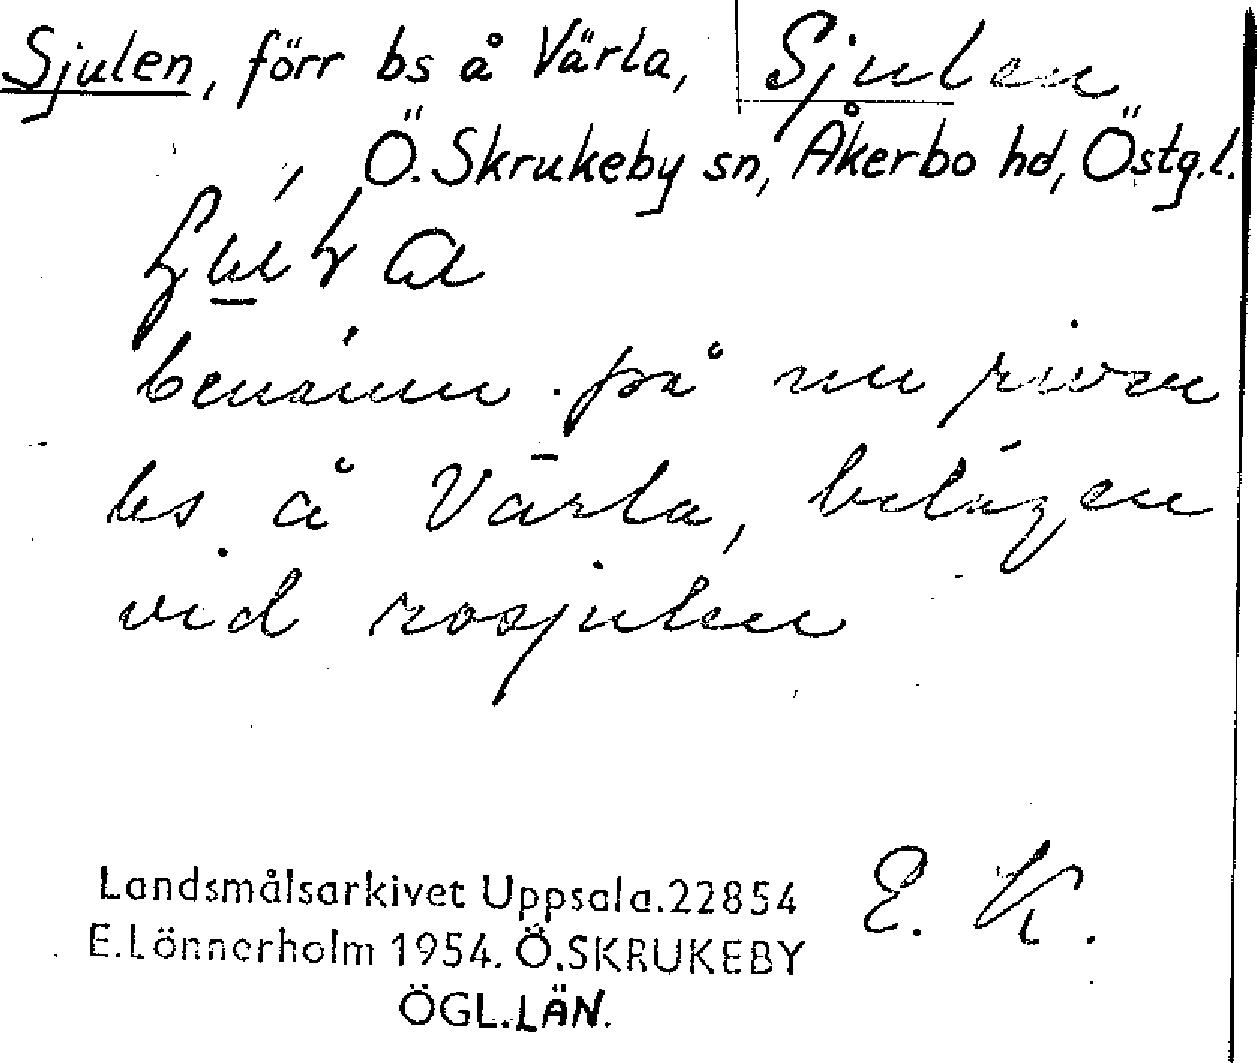 Sjulen, förr bs å Värla, Sjulen
Ö. Skrukeby sn, Åkerbo hd, Östg.l.
benämn. på nu riven
bs å Värla, belägen
vid rosjulen
E. K.
Landsmålsarkivet Uppsala.22854
E.Lönnerholm 1954. Ö.SKRUKEBY
ÖGL.LÄN.